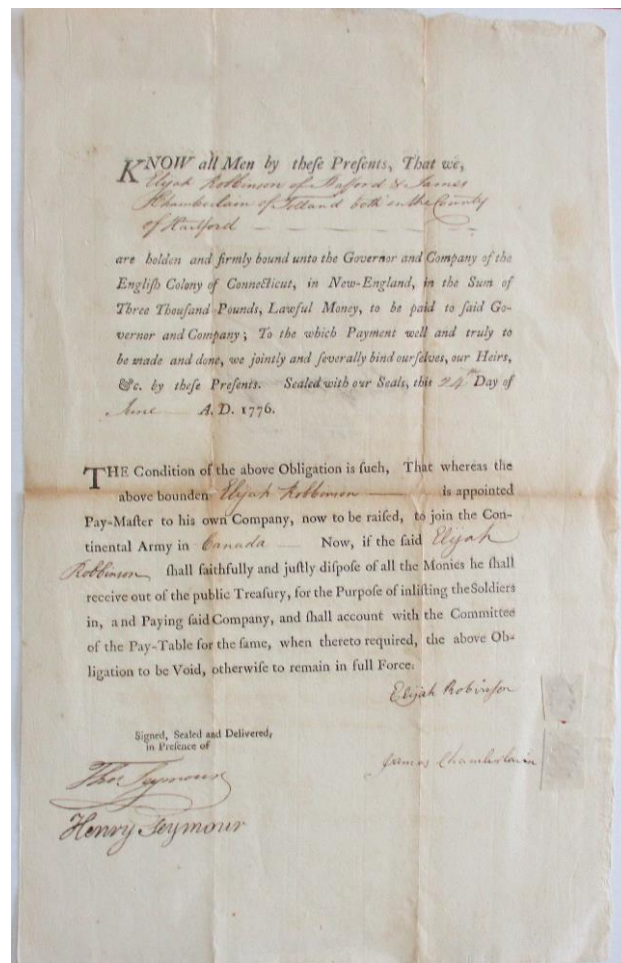 KNOW all Men by theſe Preſents, That we,
Elijah Robbinson of Stafford & James
Chamberlain of Tolland both in the County
of Hartford
are holden and firmly bound unto the Governor and Company of the
Engliſh Colony of Connecticut, in New-England, in the Sum of
Three Thouſand Pounds, Lawful Money, to be paid to ſaid Go-
vernor and Company; To the which Payment well and truly to
be made and done, we jointly and ſeverally bind ourſelves, our Heirs,
&c. by theſe Preſents. Sealed with our Seals, this 24th Day of
June A. D. 1776.
THE Condition of the above Obligation is ſuch, That whereas the
above bounden Elijah Robbinson is appointed
Pay-Maſter to his own Company, now to be raiſed, to join the Con-
tinental Army in Canada Now, if the ſaid Elijah
Robbinson ſhall faithfully and juſtly diſpoſe of all the Monies he ſhall
receive out of the public Treaſury, for the Purpoſe of inliſting the Soldiers
in, and Paying ſaid Company, and ſhall account with the Committee
of the Pay-Table for the ſame, when thereto required, the above Ob-
ligation to be Void, otherwiſe to remain in full Force.
Elijah Robinſon
Signed, Sealed and Delivered,
in Preſence of
James Chamberlain
Thos Seymour
Henry Seymour